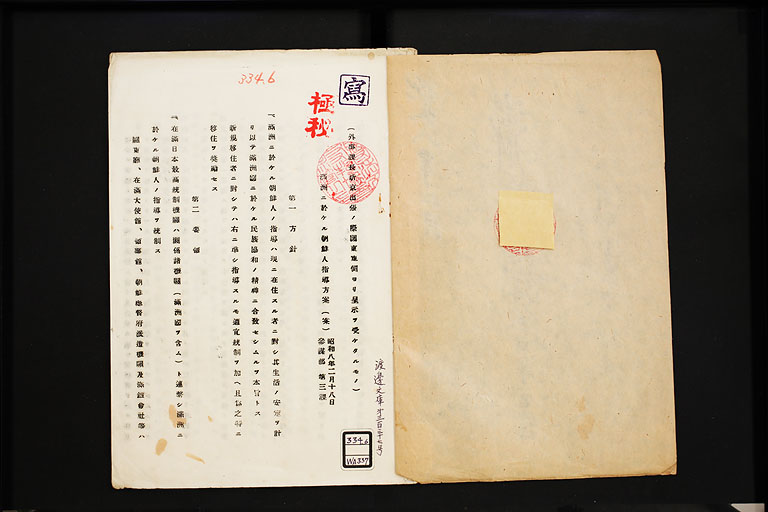 334.6
寫
極秘
(外事課長新京出張ノ際關東軍側ヨリ呈示ヲ受ケタルモノ)
滿洲ニ於ケル朝鮮人指導方案(案)
昭和八年二月十八日
參謀部 第三課
第一 方針
一、滿洲ニ於ケル朝鮮人ノ指導ハ現ニ在住スル者ニ對シ其生活ノ安定ヲ計
リ以テ滿洲國ニ於ケル民族協和ノ精神ニ合致セシムルヲ本旨トス
新規移住者ニ對シテハ右ニ準シ指導スルモ適宜統制ヲ加ヘ且
移住ヲ奬勵セス
第二 要領
一、在滿日本最高統制機關ハ關係諸機關(滿洲國ヲ含ム)ト連繫シ滿洲ニ
於ケル朝鮮人ノ指導ヲ統制ス
關東廳、在滿大使館、領事館、朝鮮總督府派遣機關及滿鐵會社等ハ
渡邊文庫第三百三十七号
334.6
WA337